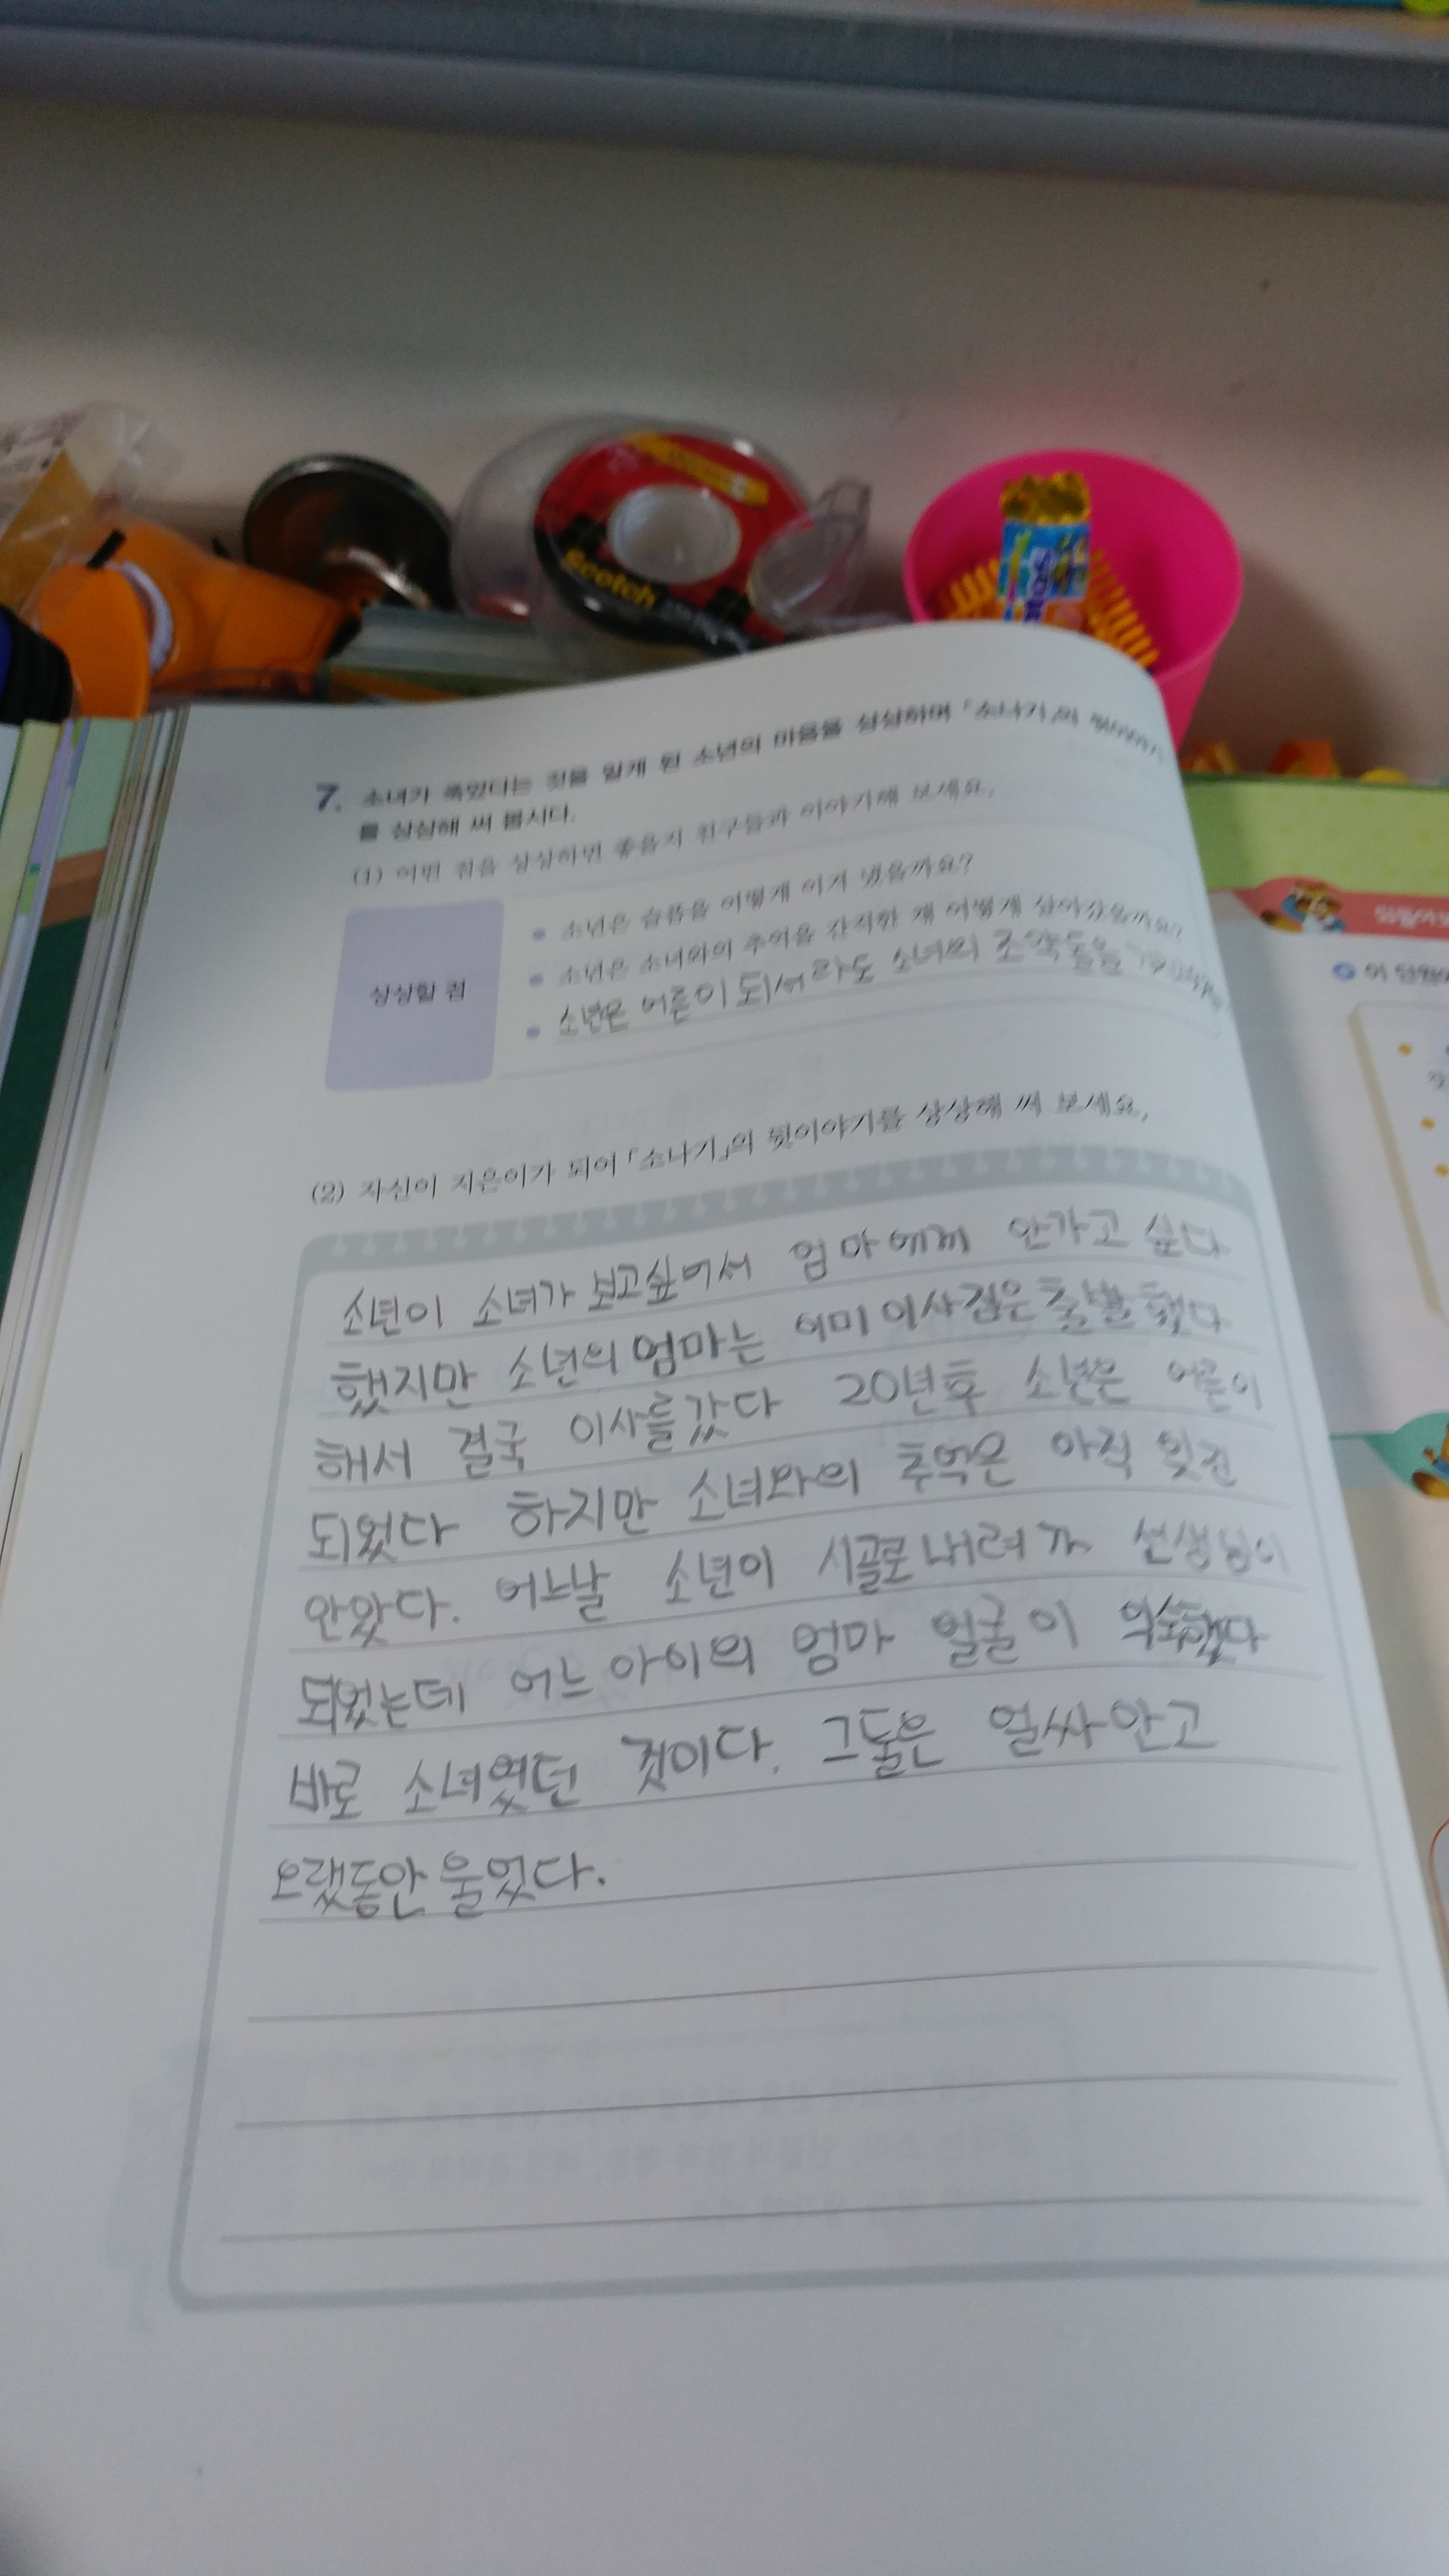 Scotch
7. 소녀가 죽었다는 것을 알게 된 소년의 마음을 상상하며 「소나기」의 뒷이야기
를 상상해 써 봅시다.
(1) 어떤 점을 상상하면 좋을지 친구들과 이야기해 보세요.
상상할 점
소년은 슬픔을 어떻게 이겨 냈을까요?
소년은 소녀와의 추억을 간직한 채 어떻게 살아갔을까요?
소년은 어른이 되서라도 소녀의
(2) 자신이 지은이가 되어 「소나기」의 뒷이야기를 상상해 써 보세요.
소년이 소녀가 보고싶어서 엄마에께 안가고 싶다
했지만 소년의 엄마는 이미 이사짐은 출발했다
해서 결국 이사를갔다 20년후 소년은 어른이
되었다 하지만 소녀와의 추억은 아직 잊진
안았다. 어느날 소년이 시골로 내려가 선생님이
되었는데 어느 아이의 엄마 얼굴이 익숙했다
바로 소녀였던 것이다. 그둘은 얼싸안고
오랬동안 울었다.
이 단원